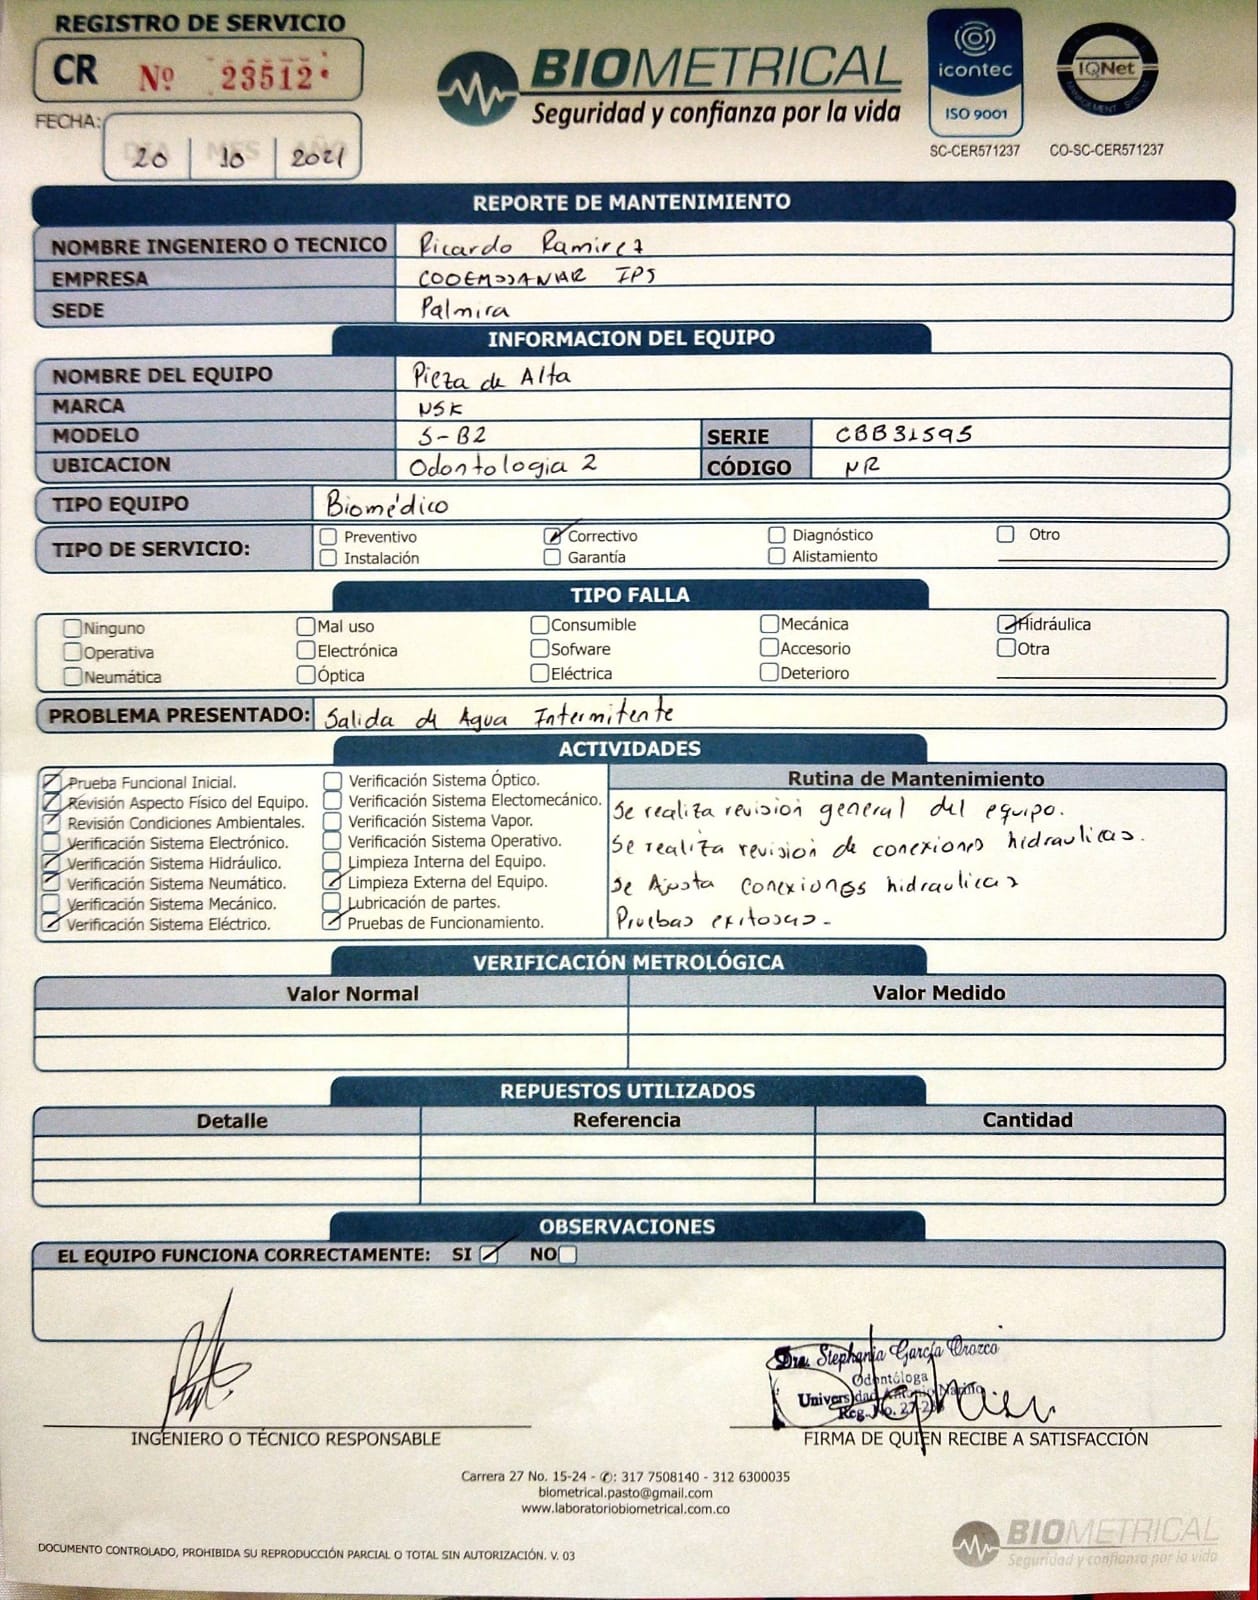 REGISTRO DE SERVICIO
CR Nº 23512
BIOMETRICAL
Seguridad y confianza por la vida
icontec
ISO 9001
SC-CER571237
IQNet
MANAGEMENT SYSTEM
CO-SC-CER571237
FECHA:
DIA MES AÑO
20 10 2021
REPORTE DE MANTENIMIENTO
NOMBRE INGENIERO O TECNICO Ricardo Ramirez
EMPRESA IPS
SEDE Palmira
INFORMACION DEL EQUIPO
NOMBRE DEL EQUIPO Pieza de Alta
MARCA NSK
MODELO S-B2 SERIE CBB31595
UBICACION Odontologia 2 CÓDIGO NR
TIPO EQUIPO Biomédico
TIPO DE SERVICIO:
Preventivo Correctivo Diagnóstico Otro
Instalación Garantía Alistamiento
TIPO FALLA
Ninguno Mal uso Consumible Mecánica Hidráulica
Operativa Electrónica Sofware Accesorio Otra
Neumática Óptica Eléctrica Deterioro
PROBLEMA PRESENTADO: Salida de Agua Intermitente
ACTIVIDADES
Prueba Funcional Inicial.
Revisión Aspecto Físico del Equipo.
Revisión Condiciones Ambientales.
Verificación Sistema Electrónico.
Verificación Sistema Hidráulico.
Verificación Sistema Neumático.
Verificación Sistema Mecánico.
Verificación Sistema Eléctrico.
Verificación Sistema Óptico.
Verificación Sistema Electomecánico.
Verificación Sistema Vapor.
Verificación Sistema Operativo.
Limpieza Interna del Equipo.
Limpieza Externa del Equipo.
Lubricación de partes.
Pruebas de Funcionamiento.
Rutina de Mantenimiento
Se realiza revisión general del equipo.
Se realiza revisión de conexiones hidraulicas.
Se Ajusta conexiones hidraulicas
Pruebas exitosas.
VERIFICACIÓN METROLÓGICA
Valor Normal Valor Medido
REPUESTOS UTILIZADOS
Detalle Referencia Cantidad
OBSERVACIONES
EL EQUIPO FUNCIONA CORRECTAMENTE: SI NO
Dra. Stephania García Orozco
Odontóloga
Universidad Antonio Nariño
Reg. No.
INGENIERO O TÉCNICO RESPONSABLE
FIRMA DE QUIEN RECIBE A SATISFACCIÓN
Carrera 27 No. 15-24 - ✆: 317 7508140 - 312 6300035
biometrical.pasto@gmail.com
www.laboratoriobiometrical.com.co
DOCUMENTO CONTROLADO, PROHIBIDA SU REPRODUCCIÓN PARCIAL O TOTAL SIN AUTORIZACIÓN. V. 03
BIOMETRICAL
Seguridad y confianza por la vida